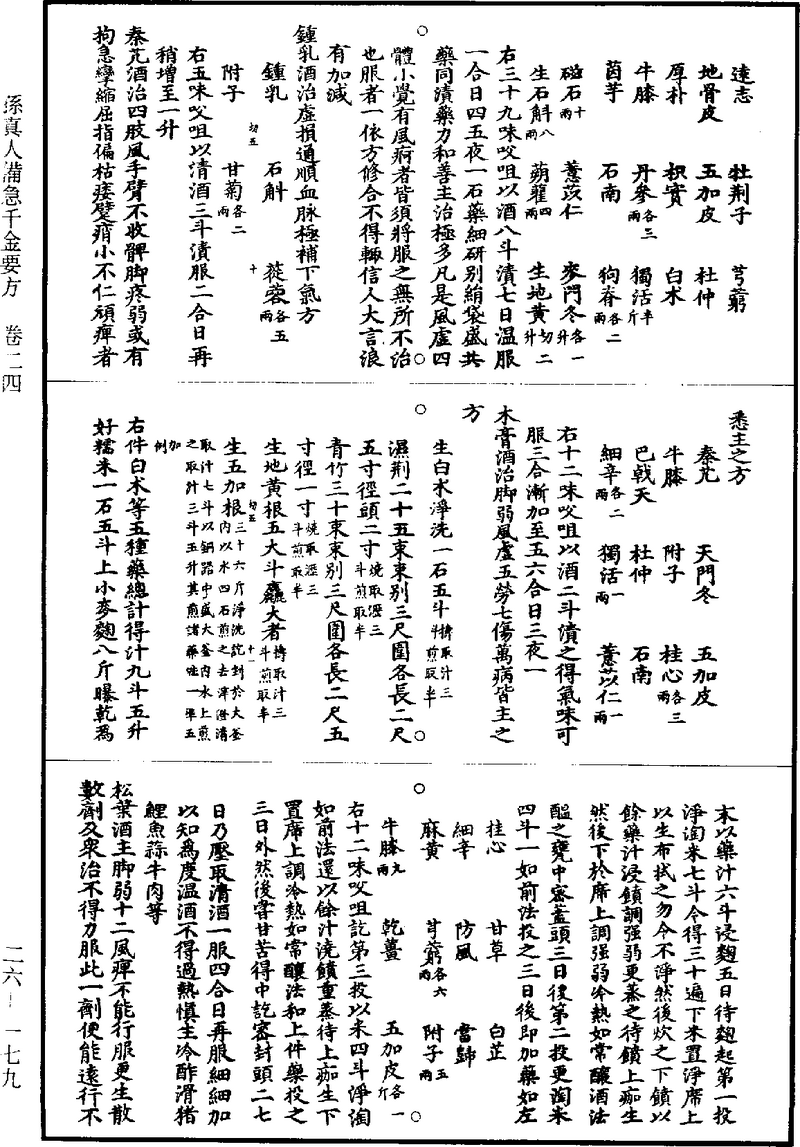 孫真人備急千金要方　卷二四
二六—一七九
遠志　杜荊子　芎藭
地骨皮　五加皮　杜仲
厚朴　枳實　白朮
牛膝　丹參各三兩　獨活半斤
茵芋　石南　狗脊各二兩
磁石十兩　薏苡仁　麥門冬各一升
生石斛八兩　蒴藋四兩　生地黃切二升
右三十九味㕮咀以酒八斗漬七日温服
一合日四五夜一石藥細研别絹袋盛共
藥同漬藥力和善主治極多凡是風虛四
體小覺有風痾者皆須將服之無所不治
也服者一依方修合不得輒信人大言浪
有加減
鍾乳酒治虛損通順血脉極補下氣方
鍾乳　石斛　蓯蓉各五兩
附子　甘菊各二兩
右五味㕮咀以清酒三斗漬服二合日再
稍增至一升
秦艽酒治四肢風手臂不收髀脚疼弱或有
拘急攣縮屈指偏枯痿躄痟小不仁頑痺者
悉主之方
秦艽　天門冬　五加皮
牛膝　附子　桂心各三兩
巴戟天　杜仲　石南
細辛各二兩　獨活一兩　薏苡仁一兩
右十二味㕮咀以酒二斗漬之得氣味可
服三合漸加至五六合日三夜一
木膏酒治脚弱風虛五勞七傷萬病皆主之
方
生白木淨洗一石五斗擣取汁三斗煎取半
濕荊二十五束束别三尺圍各長二尺
五寸徑頭二寸燒取瀝三斗煎取半
青竹三十束束别三尺圍各長二尺五
寸徑一寸燒取瀝三斗煎取半
生地黃根五大斗麤大者擣取汁三斗煎取半
生五加根三十六斤淨洗訖剉於大釜内以水四石煎之去滓澄清取汁七斗以銅器中盛大釜内水上煎之取汁三斗五升其煎諸藥法一準五加例
右件白朮等五種藥總計得汁九斗五升
好糯米一石五斗上小麥麴八斤曝乾爲
末以藥汁六斗浸麴五日待麴起第一投
淨淘米七斗令得三十遍下米置淨席上
以生布拭之勿令不淨然後炊之下饋以
餘藥汁浸饋調强弱更蒸之待饋上痂生
然後下於席上調强弱冷熱如常釀酒法
醖之甕中密蓋頭三日後第二投更淘米
四斗一如前法投之三日後即加藥如左
桂心　甘草　白芷
細辛　防風　當歸
麻黃　芎藭各六兩　附子五兩
牛膝九兩　乾薑　五加皮各一斤
右十二味㕮咀訖第三投以米四斗淨淘
如前法還以餘汁澆饋重蒸待上痂生下
置席上調冷熱如常釀法和上件藥投之
三日外然後嘗甘苦得中訖密封頭二七
日乃壓取清酒一服四合日再服細細加
以知爲度温酒不得過熱慎生冷酢滑猪
鯉魚蒜牛肉等
松葉酒主脚弱十二風痺不能行服更生散
數劑及衆治不得力服此一劑便能遠行不